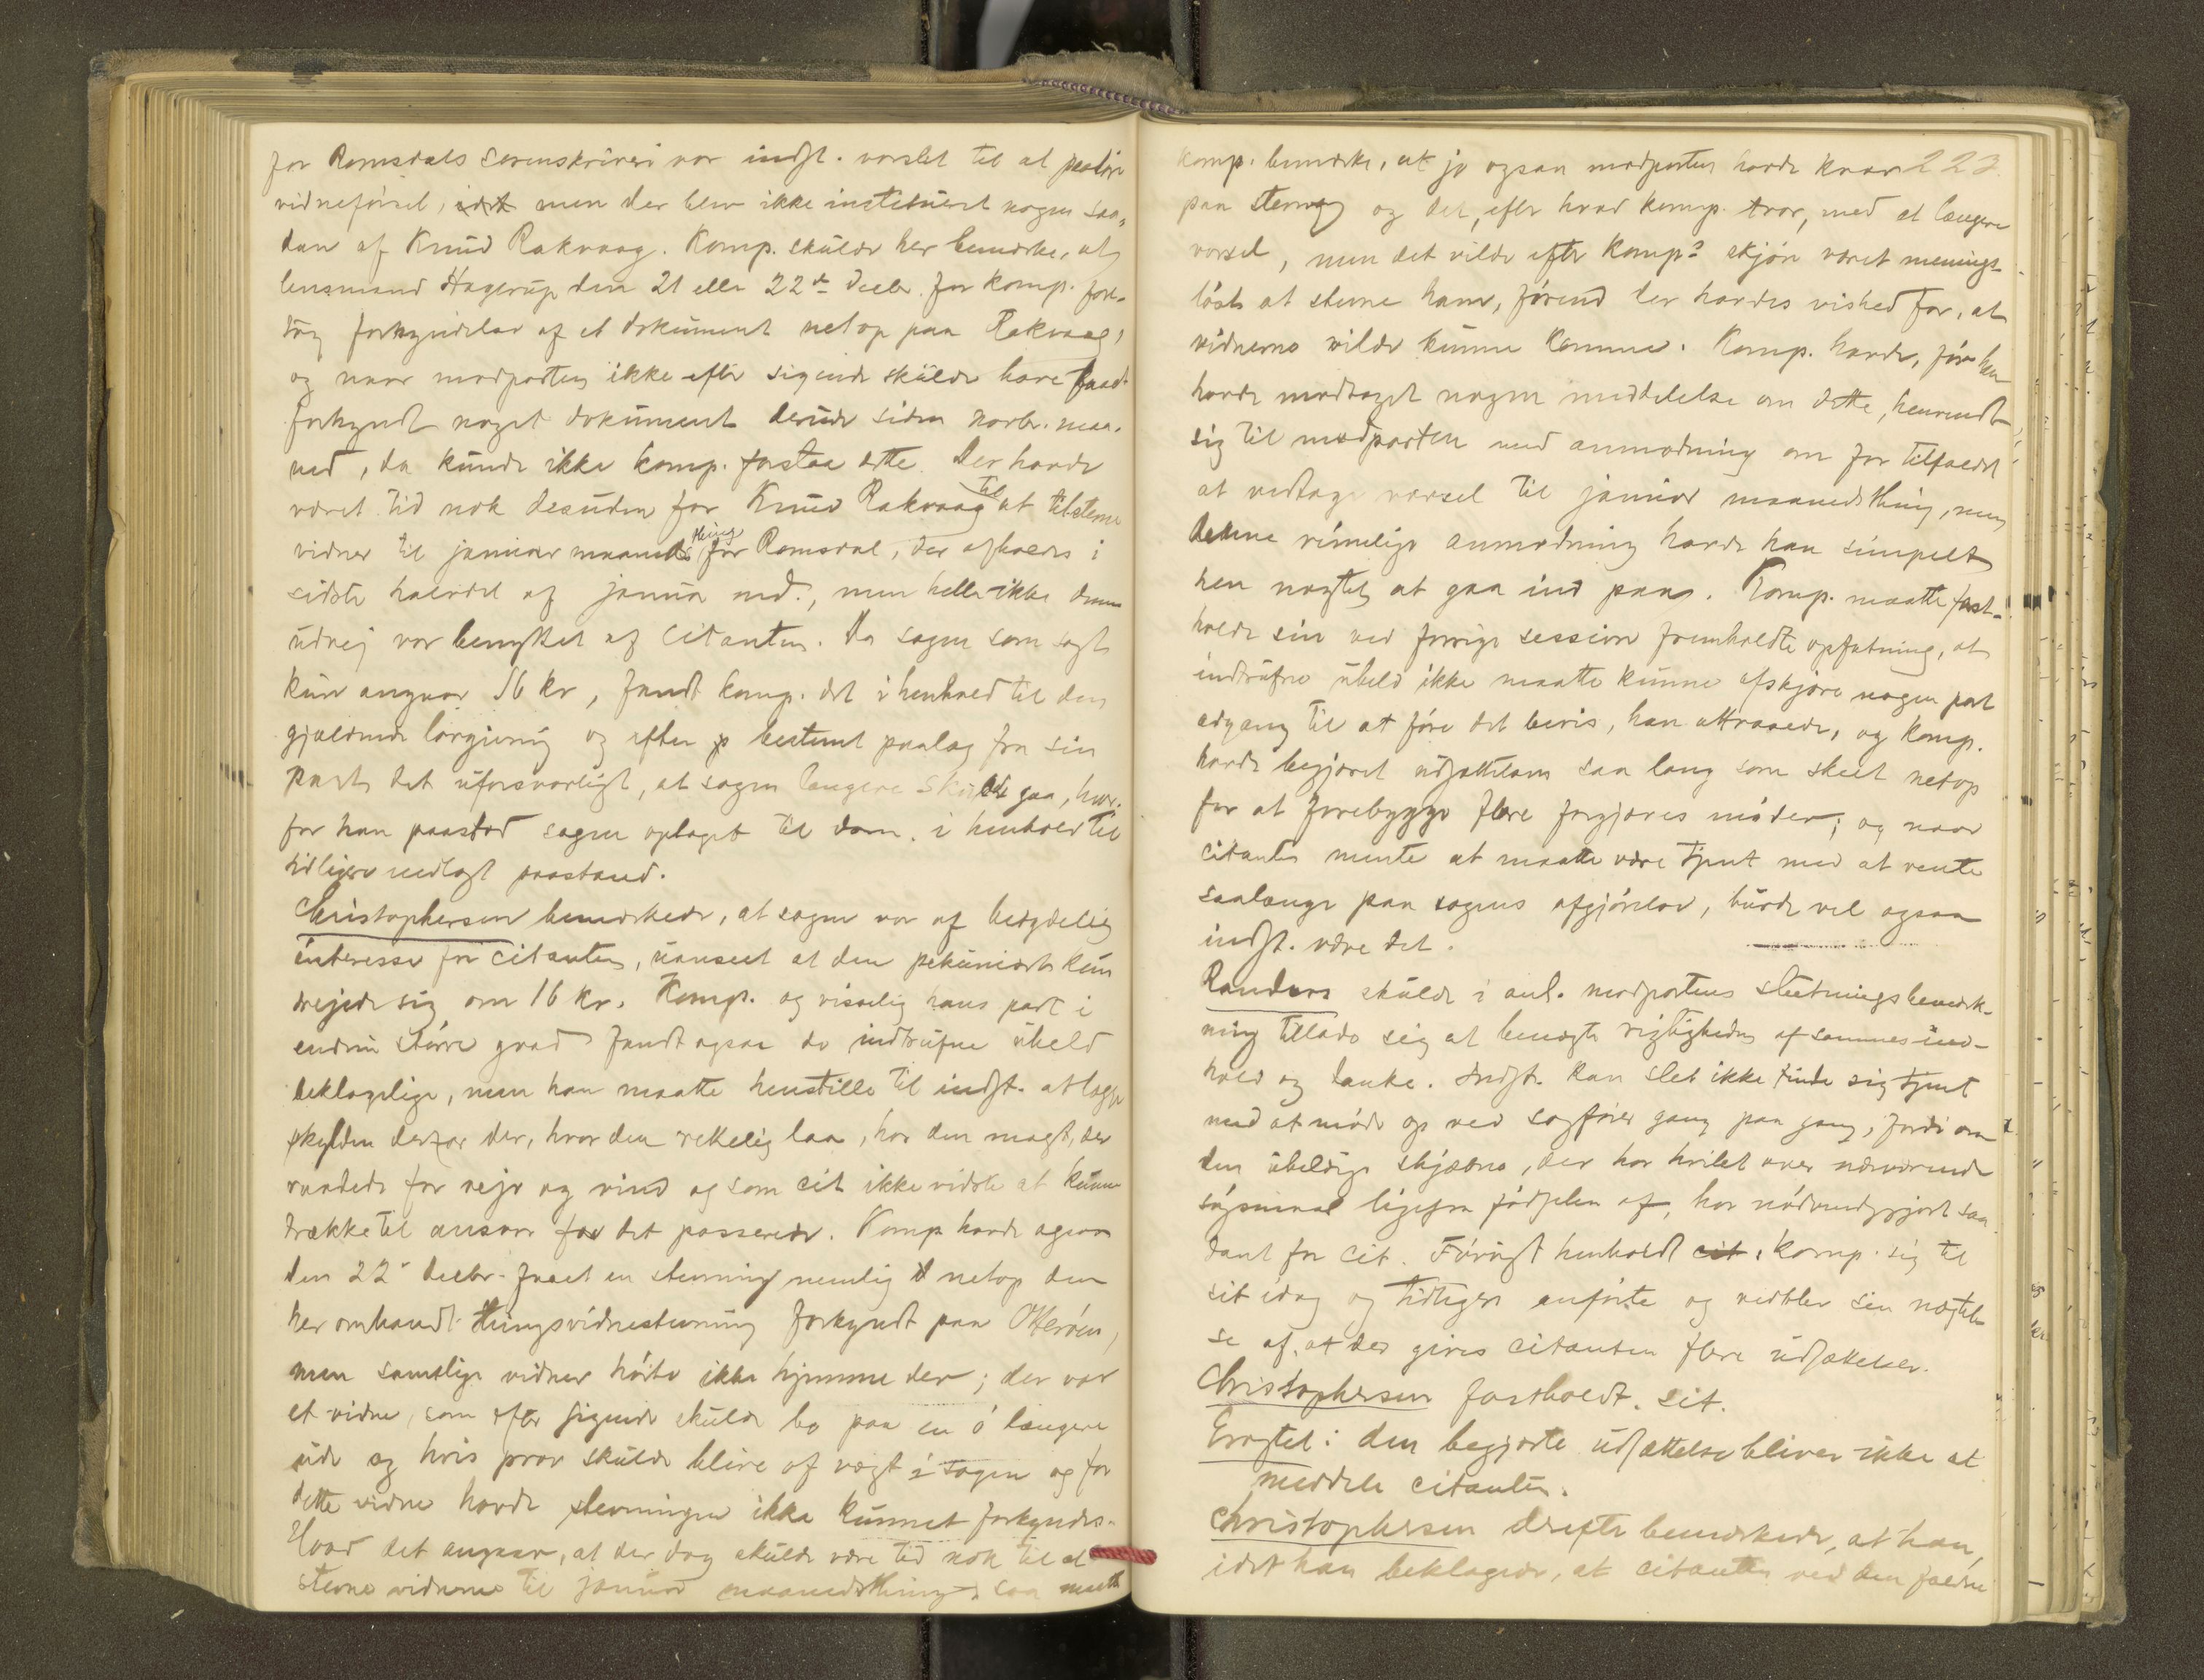 for Romsdals sorenskriveri var indst. varslet til at paahøre
vidneførsel, idet men der blev ikke institueret nogen saa-
dan af Knud Rakvaag. Komp. skulde her bemærke, at
lensmand Hagerup den 21 eller 22de decbr. for komp. fore-
tog forkyndelse af et dokument netop paa Rakvaag,
og naar modparten ikke efter sigende skulde have faaet
forkyndt noget dokument derude siden novbr. maa-
ned, da kunde ikke komp. forstaa dette. Der havde
været tid nok desuden for Knud Rakvaag til at tilstevne
vidner til januar maanedsthing for Romsdal, der afholdes i
sidste halvdel af januar md., men heller ikke denne
udvej var benyttet af citanten. Da sagen som sagt
kun angaar 16 kr, fandt komp. det i henhold til den
gjældende lovgivning og efter bestemt paalæg fra sin
part det uforsvarligt, at sagen længere skulde gaa, hvor-
for han paastod sagen optaget til dom i henhold til
tidligere nedlagt paastand.
Christophersen bemærkede, at sagen var af betydelig
interesse for citanten, uanseet at den pekuniært kun
drejede sig om 16 kr. Komp. og visselig hans part i
endnu større grad fandt ogsaa de indtrufne uheld
beklagelige, men han maatte henstille til indst. at lægge
skylden derfor der, hvor den rettelig laa, hos den magt, der
raadede for vejr og vind og som cit ikke vidste at kunne
trække til ansvar for det passerede. Komp havde ogsaa
den 22de decbr. faaet en stevning nemlig netop den
her omhandl. thingsvidnestevning forkyndt paa Otterøen,
men samtlige vidner hørte ikke hjemme der; der var
et vidne, som efter sigende skulde bo paa en ø længere
ude og hvis prov skulde blive af vægt i sagen og for
dette vidne havde stevningen ikke kunnet forkyndes.
Hvad det angaar, at der dog skulde være tid nok til at
stevne vidnerne til januar maanedsthing, saa maatte
komp. bemærke, at jo ogsaa modparten havde krav 223
paa stevning og det, efter hvad komp. tror, med et længere
varsel, men det vilde efter komp.s skjøn været menings-
løst at stevne ham, førend der havdes vished for, at
vidnerne vilde kunne komme. Komp. havde, før han
havde modtaget nogen meddelelse om dette, henvendt
sig til modparten med anmodning om for tilfældet
at vedtage varsel til januar maanedsthing, men
denne rimelige anmodning havde han simpelt
hen nægtet at gaa ind paa. Komp. maatte fast-
holde sin ved forrige session fremholdte opfatning, at
indtrufne uheld ikke maatte kunne afskjære nogen part
adgang til at føre det bevis, han attraaede, og komp.
havde begjæret udsættelsen saa lang som skeet netop
for at forebygge flere forgjæves møder; og naar
citanten mente at maatte være tjent med at vente
saalænge paa sagens afgjørelse, burde vel ogsaa
indst. være det.
Randers skulde i anl. modpartens slutningsbemærk-
ning tillade sig at benægte rigtigheden af sammes ind-
hold og tanke. Indst. kan slet ikke finde sig tjent
med at møde op ved sagfører gang paa gang, fordi om
den uheldige skjæbne, der har hvilet over nærværende
søgsmaal ligefra fødselen af, har nødvendiggjort saa
dant for cit. Forøvrigt henholdt cit. komp. sig til
sit idag og tidligere anførte og vedblev sin nægtel-
se af, at der gives citanten flere udsættelser.
Christophersen fastholdt sit.
Eragtet: den begjærte udsættelse bliver ikke at
meddele citanten.
Christophersen derefter bemærkede, at han,
idet han beklagede, at citanten ved den faldne